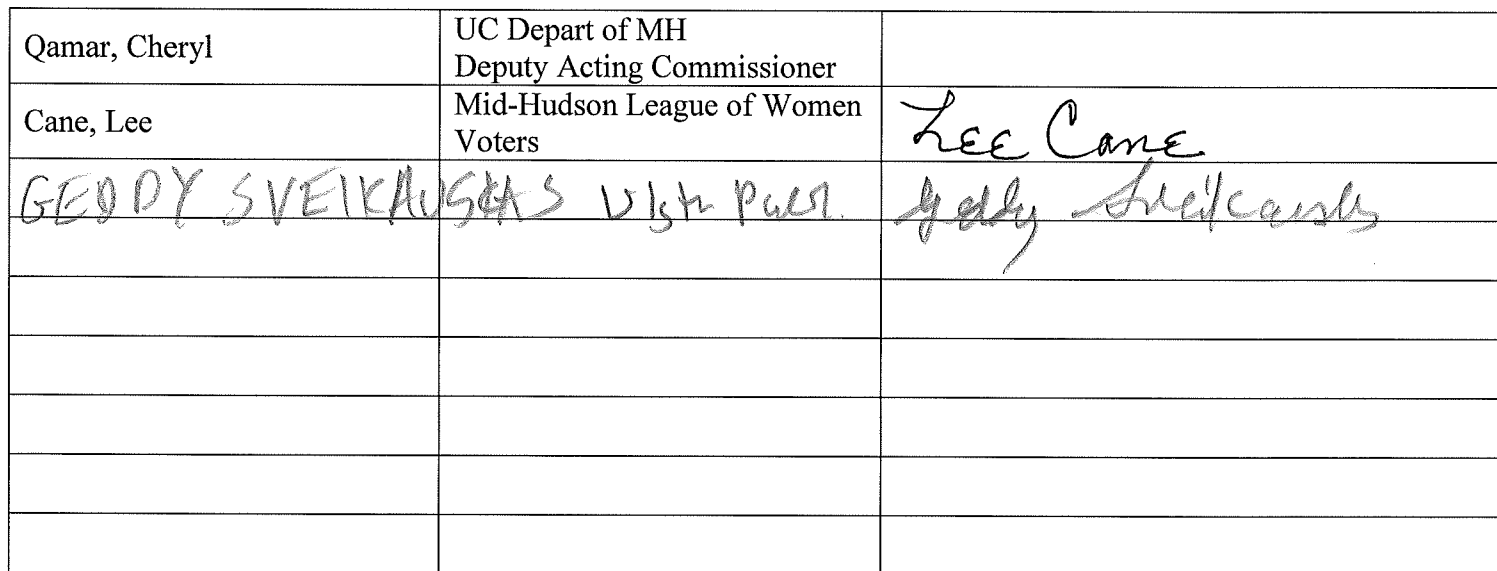 Qamar, Cheryl
UC Depart of MH
Deputy Acting Commissioner
Cane, Lee
Mid-Hudson League of Women
Voters
Lee Cane
GEDDY SVEIKAUSKAS
Geddy Sveikauskas